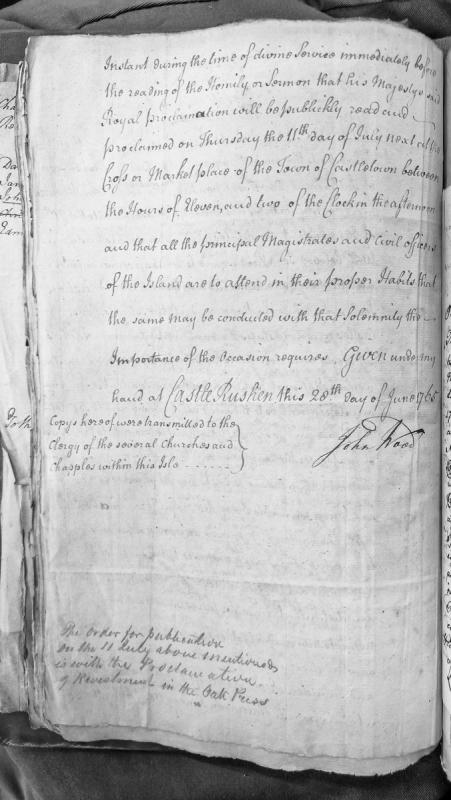 Instant during the time of divine Service immediately before
the reading of the Homily, or Sermon that his Majestys said
Royal proclamation will be publickly read and
proclaimed on Thursday the 11th day of July next at the
Cross or Market place of the Town of Castletown between
the Hours of Eleven, and two of the Clock in the afternoon
and that all the principal Magistrates and Civil officers
of the Island are to attend in their proper Habits that
the same may be conducted with that Solemnity the
Importance of the Occasion requires Given under my
hand at Castle Rushen this 28th day of June 1765
Copys hereof were transmitted to the
Clergy of the several Churches and
Chapples within this Isle
John Wood
The Order for publication
on the 11 July above mentioned
is with the Proclamation
of Revestment in the Oak Press